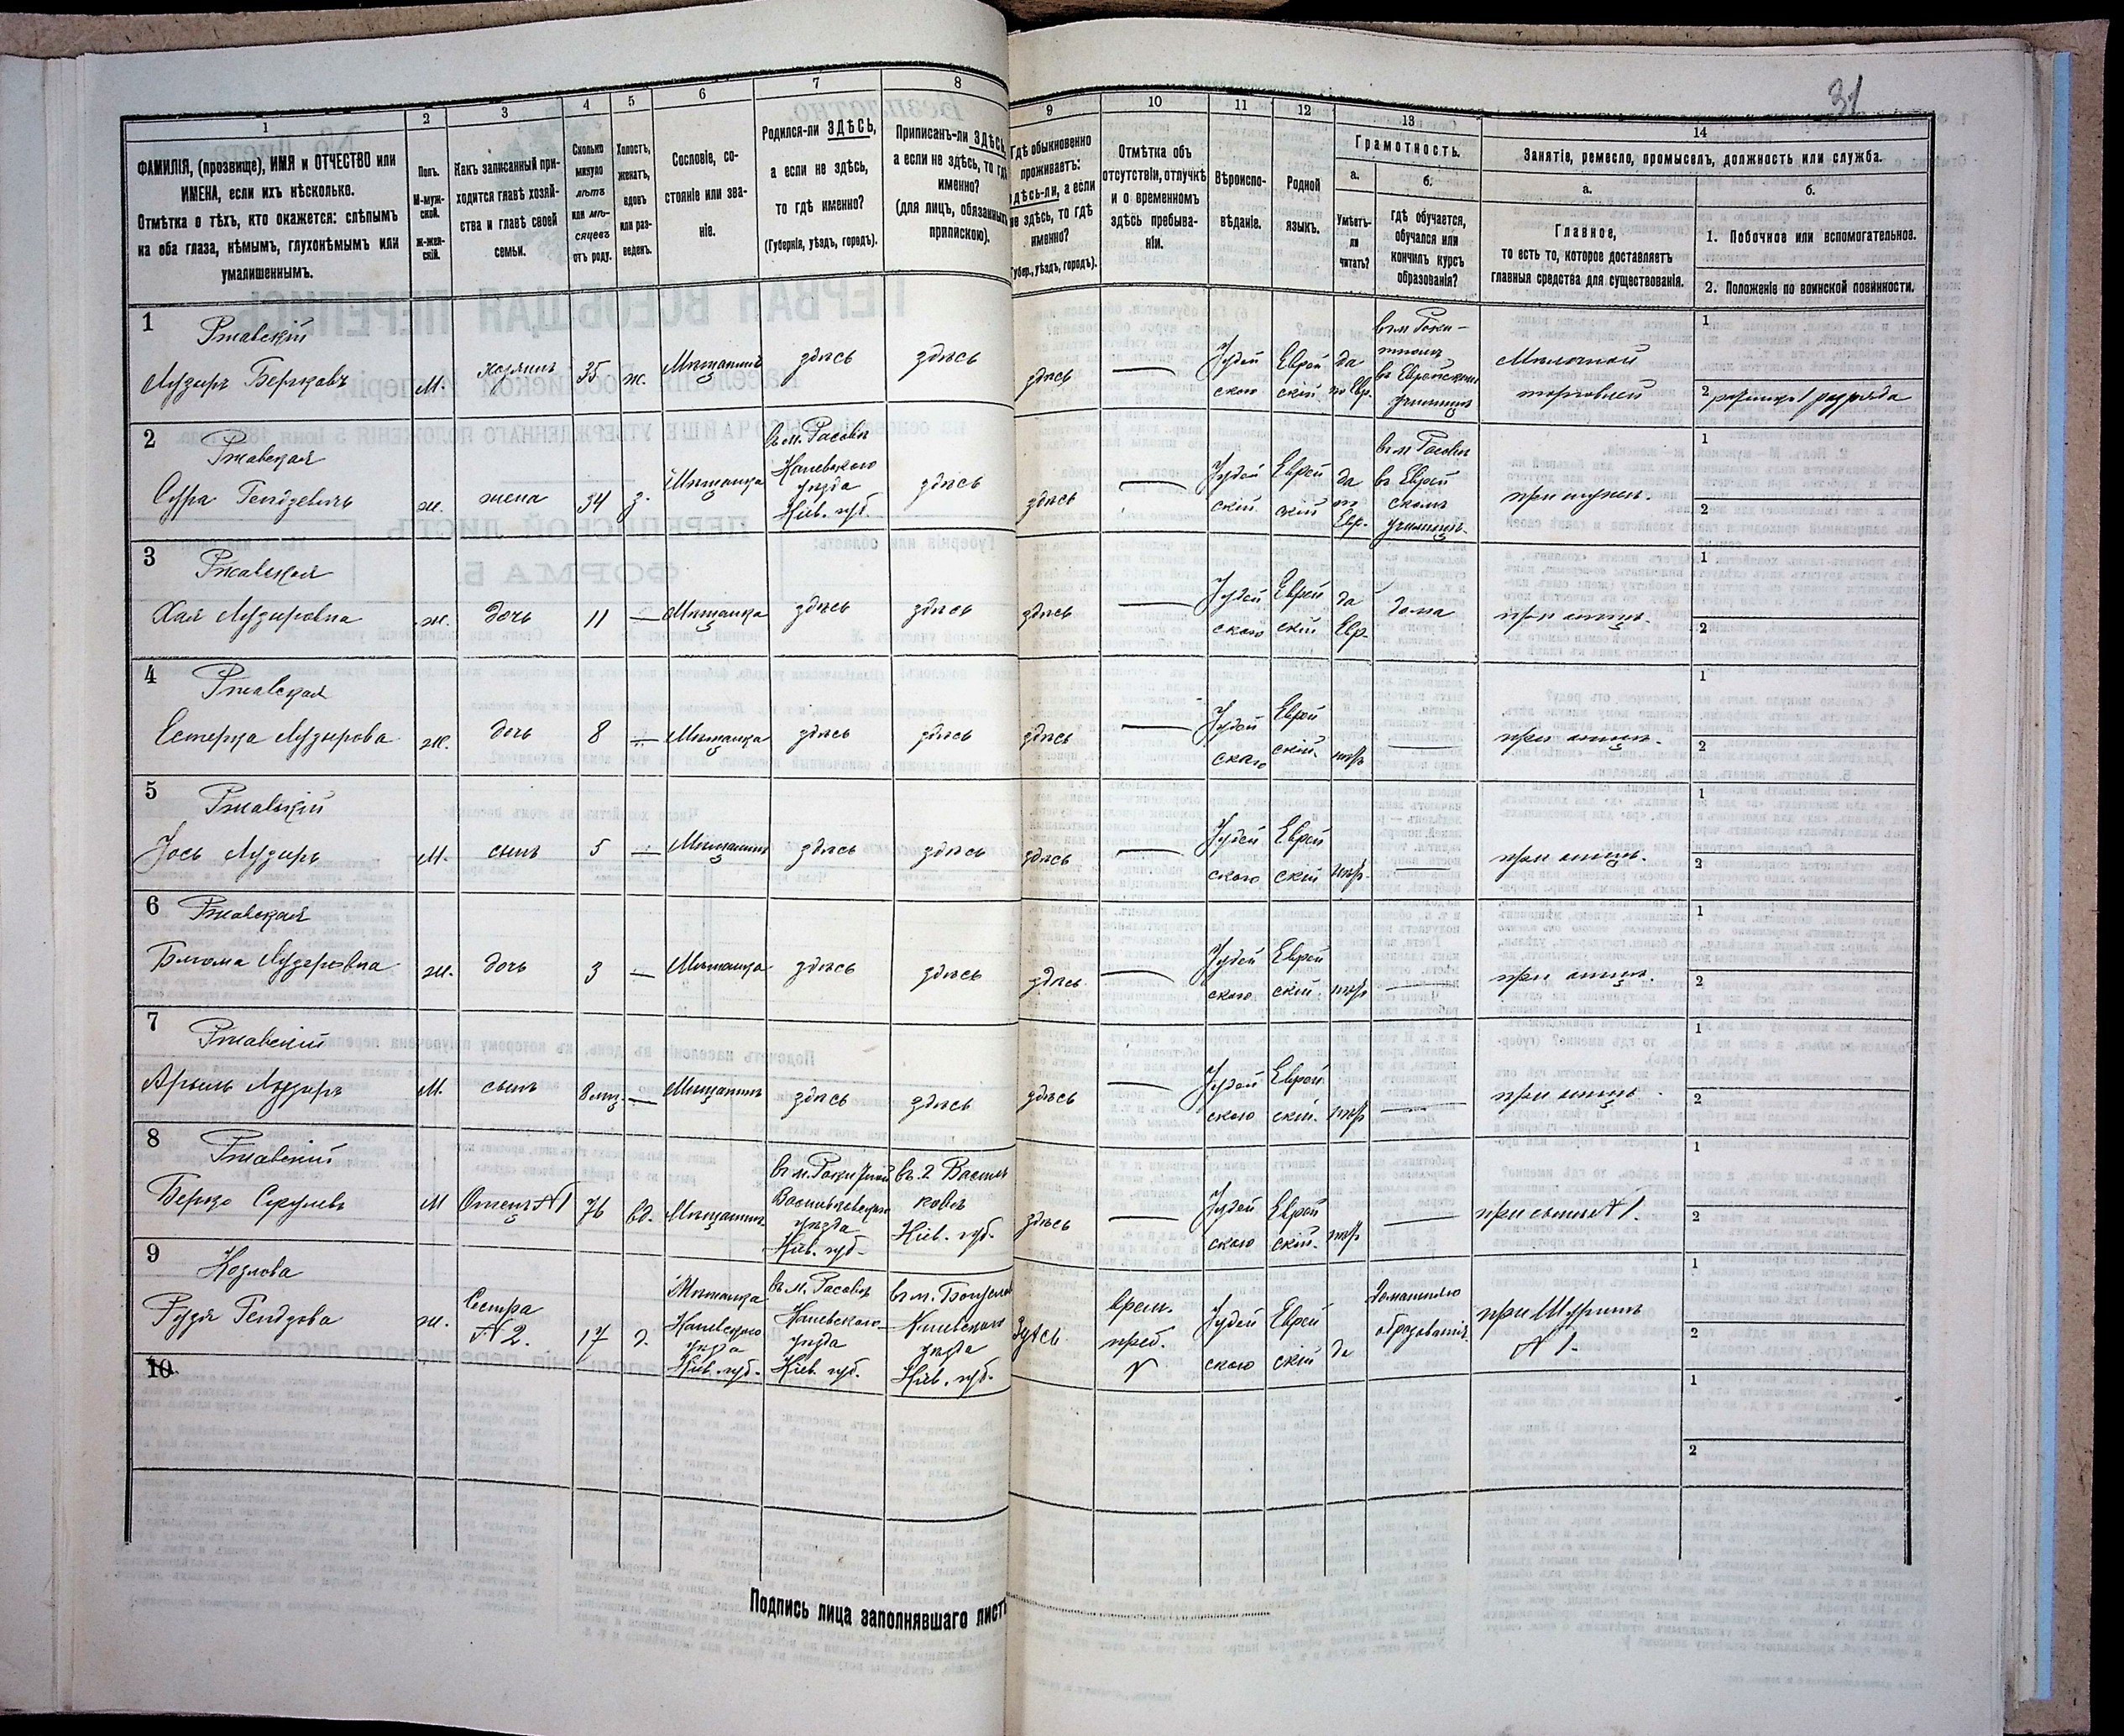 31
1
2
3
4
5
6
7
8
9
10
11
12
13
14
ФАМИЛІЯ, (прозвище), ИМЯ и ОТЧЕСТВО или
ИМЕНА, если ихъ нѣсколько.
Отмѣтка о тѣхъ, кто окажется: слѣпымъ
на оба глаза, нѣмымъ, глухонѣмымъ или
умалишеннымъ.
Полъ.
М-муж-
ской.
Ж-жен-
скій.
Какъ записанный при-
ходится главѣ хозяй-
ства и главѣ своей
семьи.
Сколько
минуло
лѣтъ
или мѣ-
сяцевъ
отъ роду.
Холостъ,
женатъ,
вдовъ
или раз-
веденъ.
Сословіе, со-
стояніе или зва-
ніе.
Родился-ли ЗДѢСЬ,
а если не здѣсь,
то гдѣ именно?
(Губернія, уѣздъ, городъ).
Приписанъ-ли ЗДѢСЬ,
а если не здѣсь, то гдѣ
именно?
(для лицъ, обязанныхъ
припискою).
Гдѣ обыкновенно
проживаетъ:
здѣсь-ли, а если
не здѣсь, то гдѣ
именно?
(Губер., уѣздъ, городъ).
Отмѣтка объ
отсутствіи, отлучкѣ
и о временномъ
здѣсь пребыва-
ніи.
Вѣроиспо-
вѣданіе.
Родной
языкъ.
Грамотность.
а.
Умѣетъ-
ли
читать?
б.
гдѣ обучается,
обучался или
кончилъ курсъ
образованія?
Занятіе, ремесло, промыселъ, должность или служба.
а.
Главное,
то есть то, которое доставляетъ
главныя средства для существованія.
б.
1. Побочное или вспомогательное.
2. Положеніе по воинской повинности.
1
Ржавскій
Лузиръ Берковъ
М.
хозяинъ
35
ж.
Мѣщанинъ
здѣсь
здѣсь
здѣсь
—
Іудей
ского
Еврей
скій
да
по Евр.
въ м. Раки-
тномъ
въ Еврейскомъ
училищѣ
Мелочной
торговлей
1
2 ратникъ 1 разряда
2
Ржавская
Сура Гендзевичъ
ж.
жена
34
з.
Мѣщанка
въ м. Расовѣ
Каневского
уѣзда
Кіев. губ.
здѣсь
здѣсь
—
Іудей
ский
Еврей
ский
да
по
Евр.
въ м. Расовѣ
въ Еврей
скомъ
училищѣ.
при мужѣ.
1
2
3
Ржавская
Хая Лузировна
ж.
дочь
11
—
Мѣщанка
здѣсь
здѣсь
здѣсь
—
Іудей
ского
Еврей
скій
да
Евр.
дома
при отцѣ.
1
2
4
Ржавская
Естерка Лузырова
ж.
дочь
8
—
Мѣщанка
здѣсь
здѣсь
здѣсь
—
Іудей
ского
Еврей
скій.
—
при отцѣ.
1
2
5
Ржавскій
Іось Лузиръ
М.
сынъ
5
—
Мѣщанинъ
здѣсь
здѣсь
здѣсь
—
Іудей
ского
Еврей
скій
—
при отцѣ.
1
2
6
Ржавская
Блюма Лузеровна
ж.
дочь
3
—
Мѣщанка
здѣсь
здѣсь
здѣсь
—
Іудей
ского
Еврей
скій.
—
при отцѣ.
1
2
7
Ржавский
Арыль Лузиръ
М.
сынъ
8 мц.
—
Мѣщанинъ
здѣсь
здѣсь
здѣсь
—
Іудей
ского
Еврей
скій.
—
при отцѣ.
1
2
8
Ржавский
Берко Сруլевъ
М
Отецъ №1
76
вд.
Мѣщанинъ
въ м. Ракитной
Васильковскаго
уѣзда
Кіев. губ.
въ г. Василь
ковѣ
Кіев. губ.
здѣсь
—
Іудей
ского
Еврей
скій.
—
при сынѣ №1.
1
2
9
Козлова
Рузя Гендзова
ж.
Сестра
№ 2.
17
д.
Мѣщанка
Каневского
уѣзда
Кіев. губ.
въ м. Расовѣ
Каневского
уѣзда
Кіев. губ.
Каневского
уѣзда
Кіев. губ.
Здѣсь
врем.
преб.
Іудей
ского
Еврей
скій
да
домашнею
образованія.
при Шуринѣ
№ 1.
1
2
10
1
2
Подпись лица заполнявшаго листъ